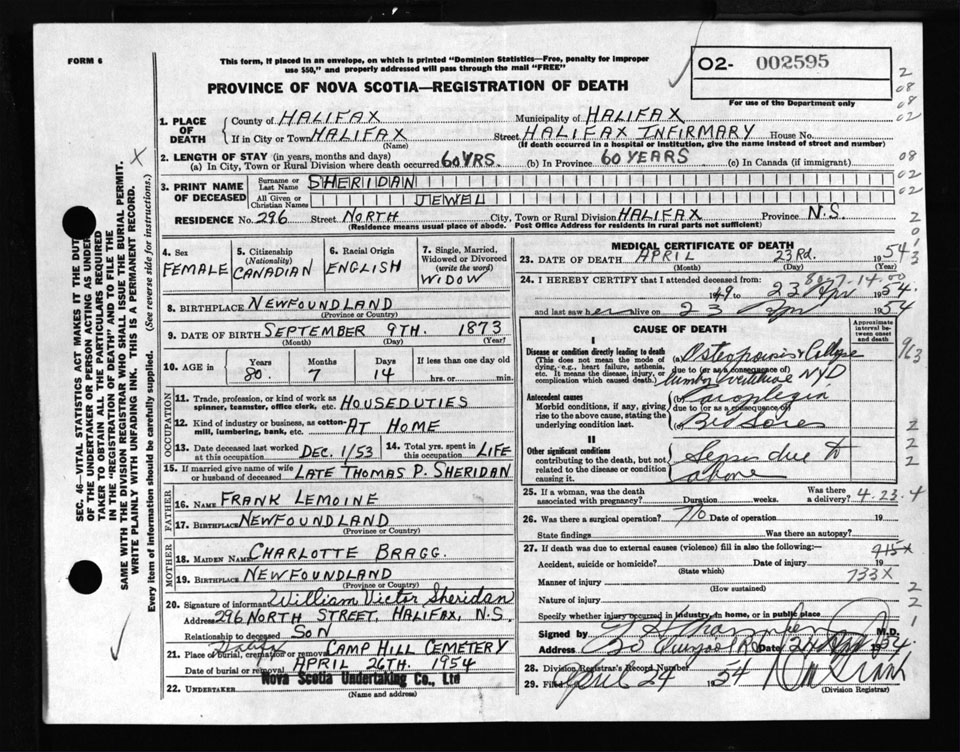 FORM 6
This form, if placed in an envelope, on which is printed "Dominion Statistics—Free, penalty for improper
use $50," and properly addressed will pass through the mail "FREE"
O2- 002595
For use of the Department only
PROVINCE OF NOVA SCOTIA—REGISTRATION OF DEATH
1. PLACE OF DEATH
County of HALIFAX Municipality of HALIFAX
If in City or Town HALIFAX Street HALIFAX INFIRMARY House No.
(Name) (If death occurred in a hospital or institution, give the name instead of street and number)
2. LENGTH OF STAY (in years, months and days)
(a) In City, Town or Rural Division where death occurred 60 YRS. (b) In Province 60 YEARS (c) In Canada (if immigrant)
3. PRINT NAME OF DECEASED
Surname or Last Name SHERIDAN
All Given or Christian Names JEWEL
RESIDENCE No. 296 Street NORTH City, Town or Rural Division HALIFAX Province N.S.
(Residence means usual place of abode. Post Office Address for residents in rural parts not sufficient)
2
08
08
02
08
02
02
2
0
1
3
SEC. 46—VITAL STATISTICS ACT MAKES IT THE DUTY
OF THE UNDERTAKER OR PERSON ACTING AS UNDER
TAKER TO OBTAIN ALL THE PARTICULARS REQUIRED
IN THE "REGISTRATION OF DEATH" AND TO FILE THE
SAME WITH THE DIVISION REGISTRAR WHO SHALL ISSUE THE BURIAL PERMIT.
WRITE PLAINLY WITH UNFADING INK. THIS IS A PERMANENT RECORD.
Every item of information should be carefully supplied. (See reverse side for instructions.)
4. Sex FEMALE
5. Citizenship (Nationality) CANADIAN
6. Racial Origin ENGLISH
7. Single, Married, Widowed or Divorced (write the word) WIDOW
8. BIRTHPLACE NEWFOUNDLAND
(Province or Country)
9. DATE OF BIRTH SEPTEMBER 9TH. 1873
(Month) (Day) (Year)
10. AGE in Years 80 Months 7 Days 14 If less than one day old hrs. or min.
OCCUPATION
11. Trade, profession, or kind of work as spinner, teamster, office clerk, etc. HOUSEDUTIES
12. Kind of industry or business, as cotton-mill, lumbering, bank, etc. AT HOME
13. Date deceased last worked at this occupation DEC. 1/53
14. Total yrs. spent in this occupation LIFE
15. If married give name of wife or husband of deceased LATE THOMAS P. SHERIDAN
FATHER
16. Name FRANK LEMOINE
17. Birthplace NEWFOUNDLAND
(Province or Country)
MOTHER
18. Maiden Name CHARLOTTE BRAGG.
19. Birthplace NEWFOUNDLAND
(Province or Country)
20. Signature of informant William Victor Sheridan
Address 296 NORTH STREET, HALIFAX, N.S.
Relationship to deceased SON
21. Place of burial, cremation or removal Halifax CAMP HILL CEMETERY
Date of burial APRIL 26TH. 1954
22. UNDERTAKER Nova Scotia Undertaking Co., Ltd
(Name and address)
MEDICAL CERTIFICATE OF DEATH
23. DATE OF DEATH APRIL 23RD. 1954
(Month) (Day) (Year)
24. I HEREBY CERTIFY that I attended deceased from:
80-7-14-00
19 to 23 Apr 1954.
and last saw her alive on 23 Apr 1954
CAUSE OF DEATH
Approximate interval between onset and death
I
Disease or condition directly leading to death (a) Osteoporosis & Collapse
(This does not mean the mode of dying, e.g., heart failure, asthenia, etc. It means the disease, injury, or complication which caused death.)
due to (or as a consequence of)
lumbar vertebrae NYD
Antecedent causes (b) Paraplegia
Morbid conditions, if any, giving rise to the above cause, stating the underlying condition last.
due to (or as a consequence of)
(c) Bed Sores
II
Other significant conditions
contributing to the death, but not related to the disease or condition causing it.
Sepsis due to
above
25. If a woman, was the death associated with pregnancy? Duration weeks. Was there a delivery? 4.23.4
26. Was there a surgical operation? No Date of operation 19
State findings Was there an autopsy?
27. If death was due to external causes (violence) fill in also the following:—
Accident, suicide or homicide? Date of injury 19
(State which)
915X
Manner of injury 733X
(How sustained)
Nature of injury
Specify whether injury occurred in industry, in home, or in public place
Signed by M.D.
Address Date 24 Apr 54
28. Division Registrar's Record Number
29. Filed April 24 1954
(Division Registrar)